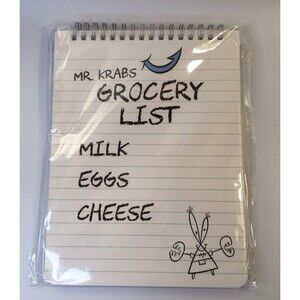 MR. KRABS
GROCERY
LIST
MILK
EGGS
CHEESE